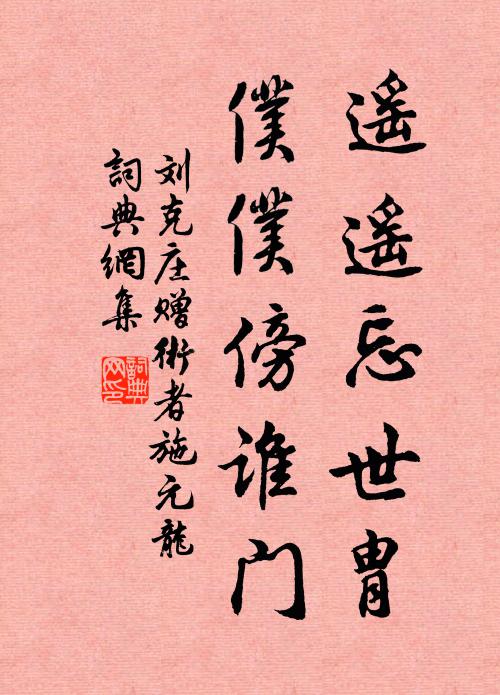 遥遥忘世胄
僕僕傍谁门
刘克庄赠術者施元龍
詞典網集
詞典网印